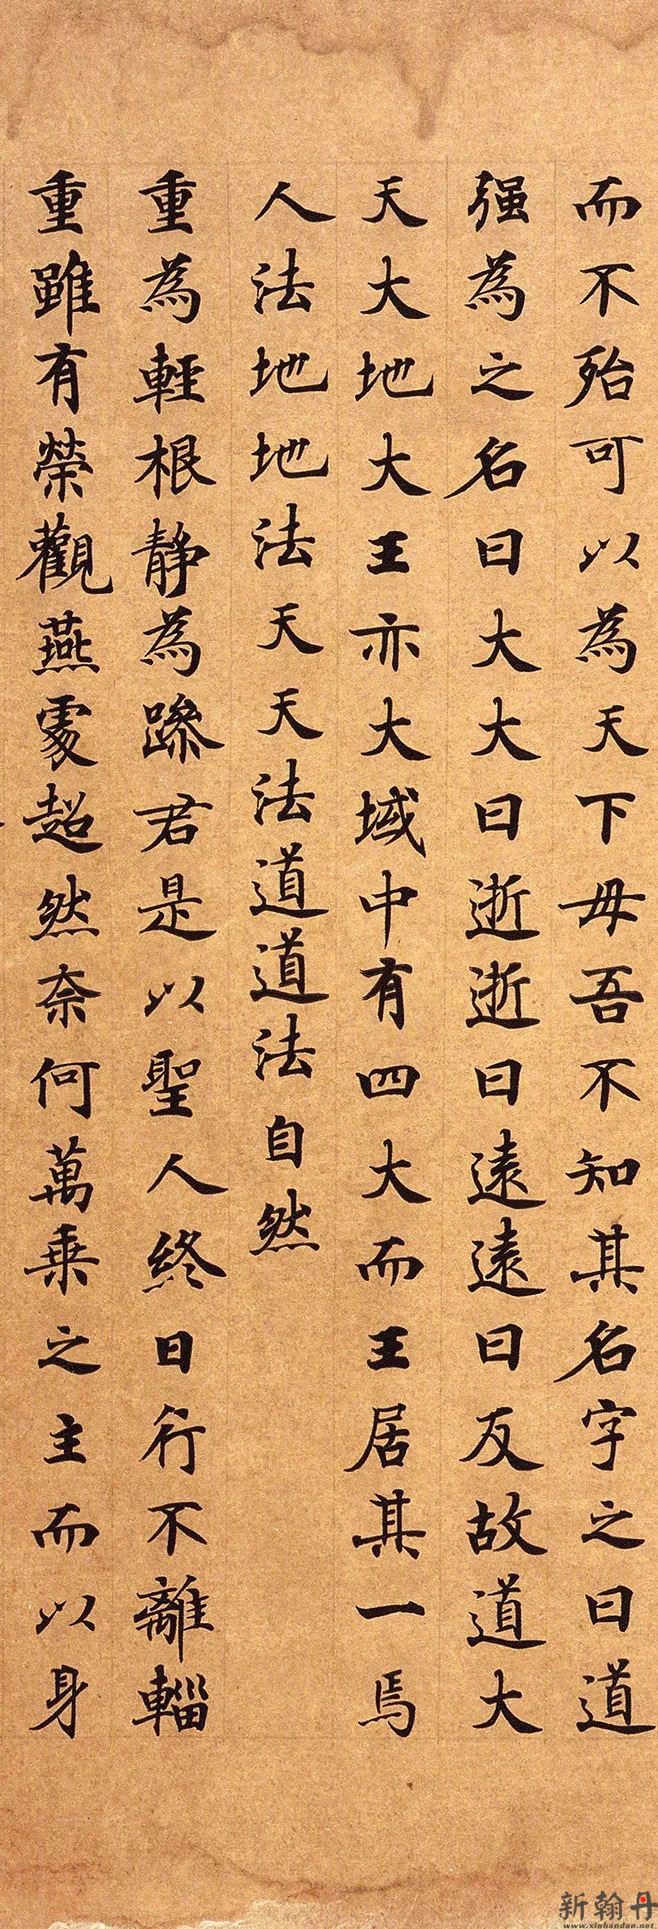 而不殆可以為天下母吾不知其名字之曰道
强為之名曰大大曰逝逝曰遠遠曰反故道大
天大地大王亦大域中有四大而王居其一焉
人法地地法天天法道道法自然
重為輕根静為躁君是以聖人終日行不離輜
重雖有榮觀燕處超然奈何萬乗之主而以身
新翰丹
www.xinhandan.net